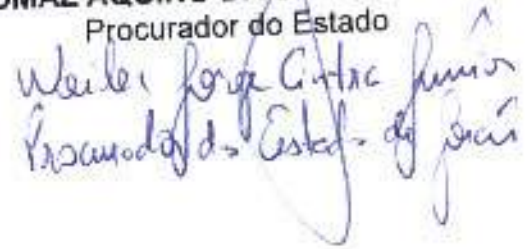 AQUINO
Procurador do Estado
Weiler Jorge Cintra Junior
Procurador do Estado de Goiás